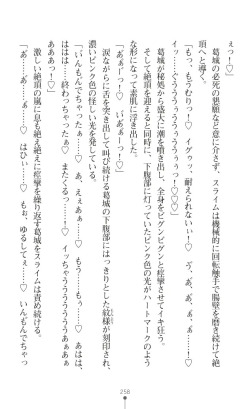 えっ！♡」
葛城の必死の懇願など意に介さず、スライムは機械的に回転触手で腸壁を磨き続けて絶
頂へと導く。
「もっ、もうむりっ！♡　イグゥッ、耐えられないぃっ！♡　う、あ゛、あ゛、あ゛っ！♡
イッ……♡　ぐうううううぅぅぅっ！♡♡♡」
葛城が秘処から盛大に潮を噴き出し、全身をビグンビグンと痙攣させてイキ狂う。
そして絶頂を迎えると同時に、下腹部に灯っていたピンク色の光がハートマークのよう
な形になって素肌に浮き出した。
「あ゛あぁーっ！♡　いあ゛ぁーっ！♡」
涙ながらに舌を突き出して叫び続ける葛城の下腹部にはっきりとした紋様が刻印され、
濃いピンク色の怪しい光を発している。
「いんもんでちゃったぁ……♡　あ、えぁあぁ……♡　もう……♡　もう……♡　あは
ははは……終わっちゃったぁ……♡　またくるっ……♡　イッちゃうううううあぁあぁ
あああっ！♡」
激しい絶頂の嵐に息も絶え絶えに痙攣を繰り返す葛城をスライムは責め続ける。
「あ゛……あ゛……♡　はひぃ……♡　もぉ、ゆるしてぇ……♡　いんもんでちゃっ
256